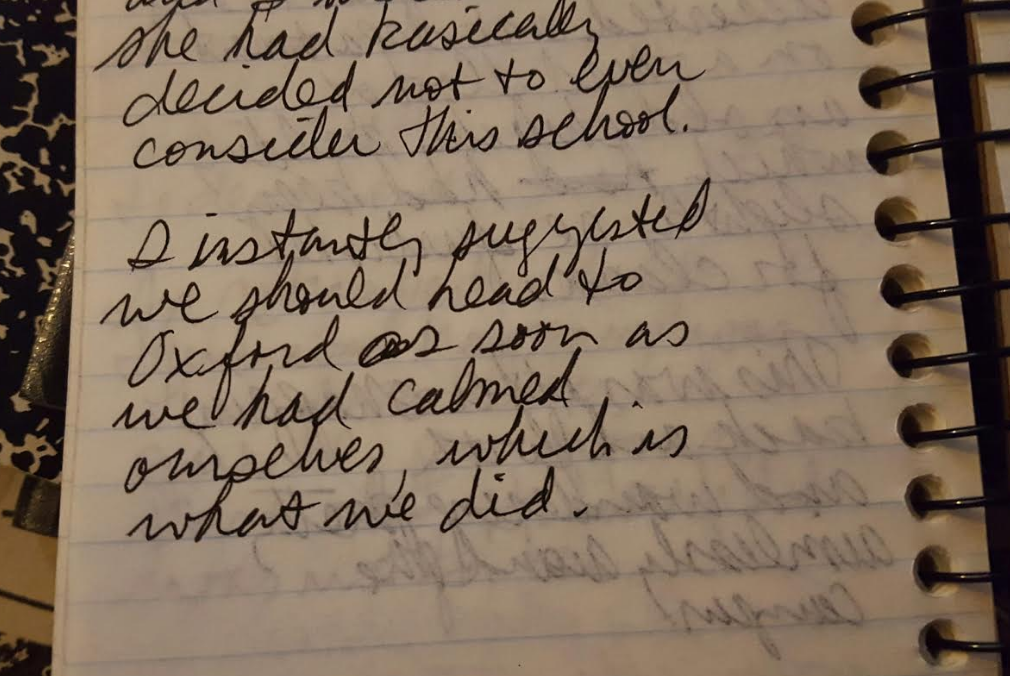 she had basically
decided not to even
consider this school.
I instantly suggested
we should head to
Oxford as soon as
we had calmed
ourselves, which is
what we did.